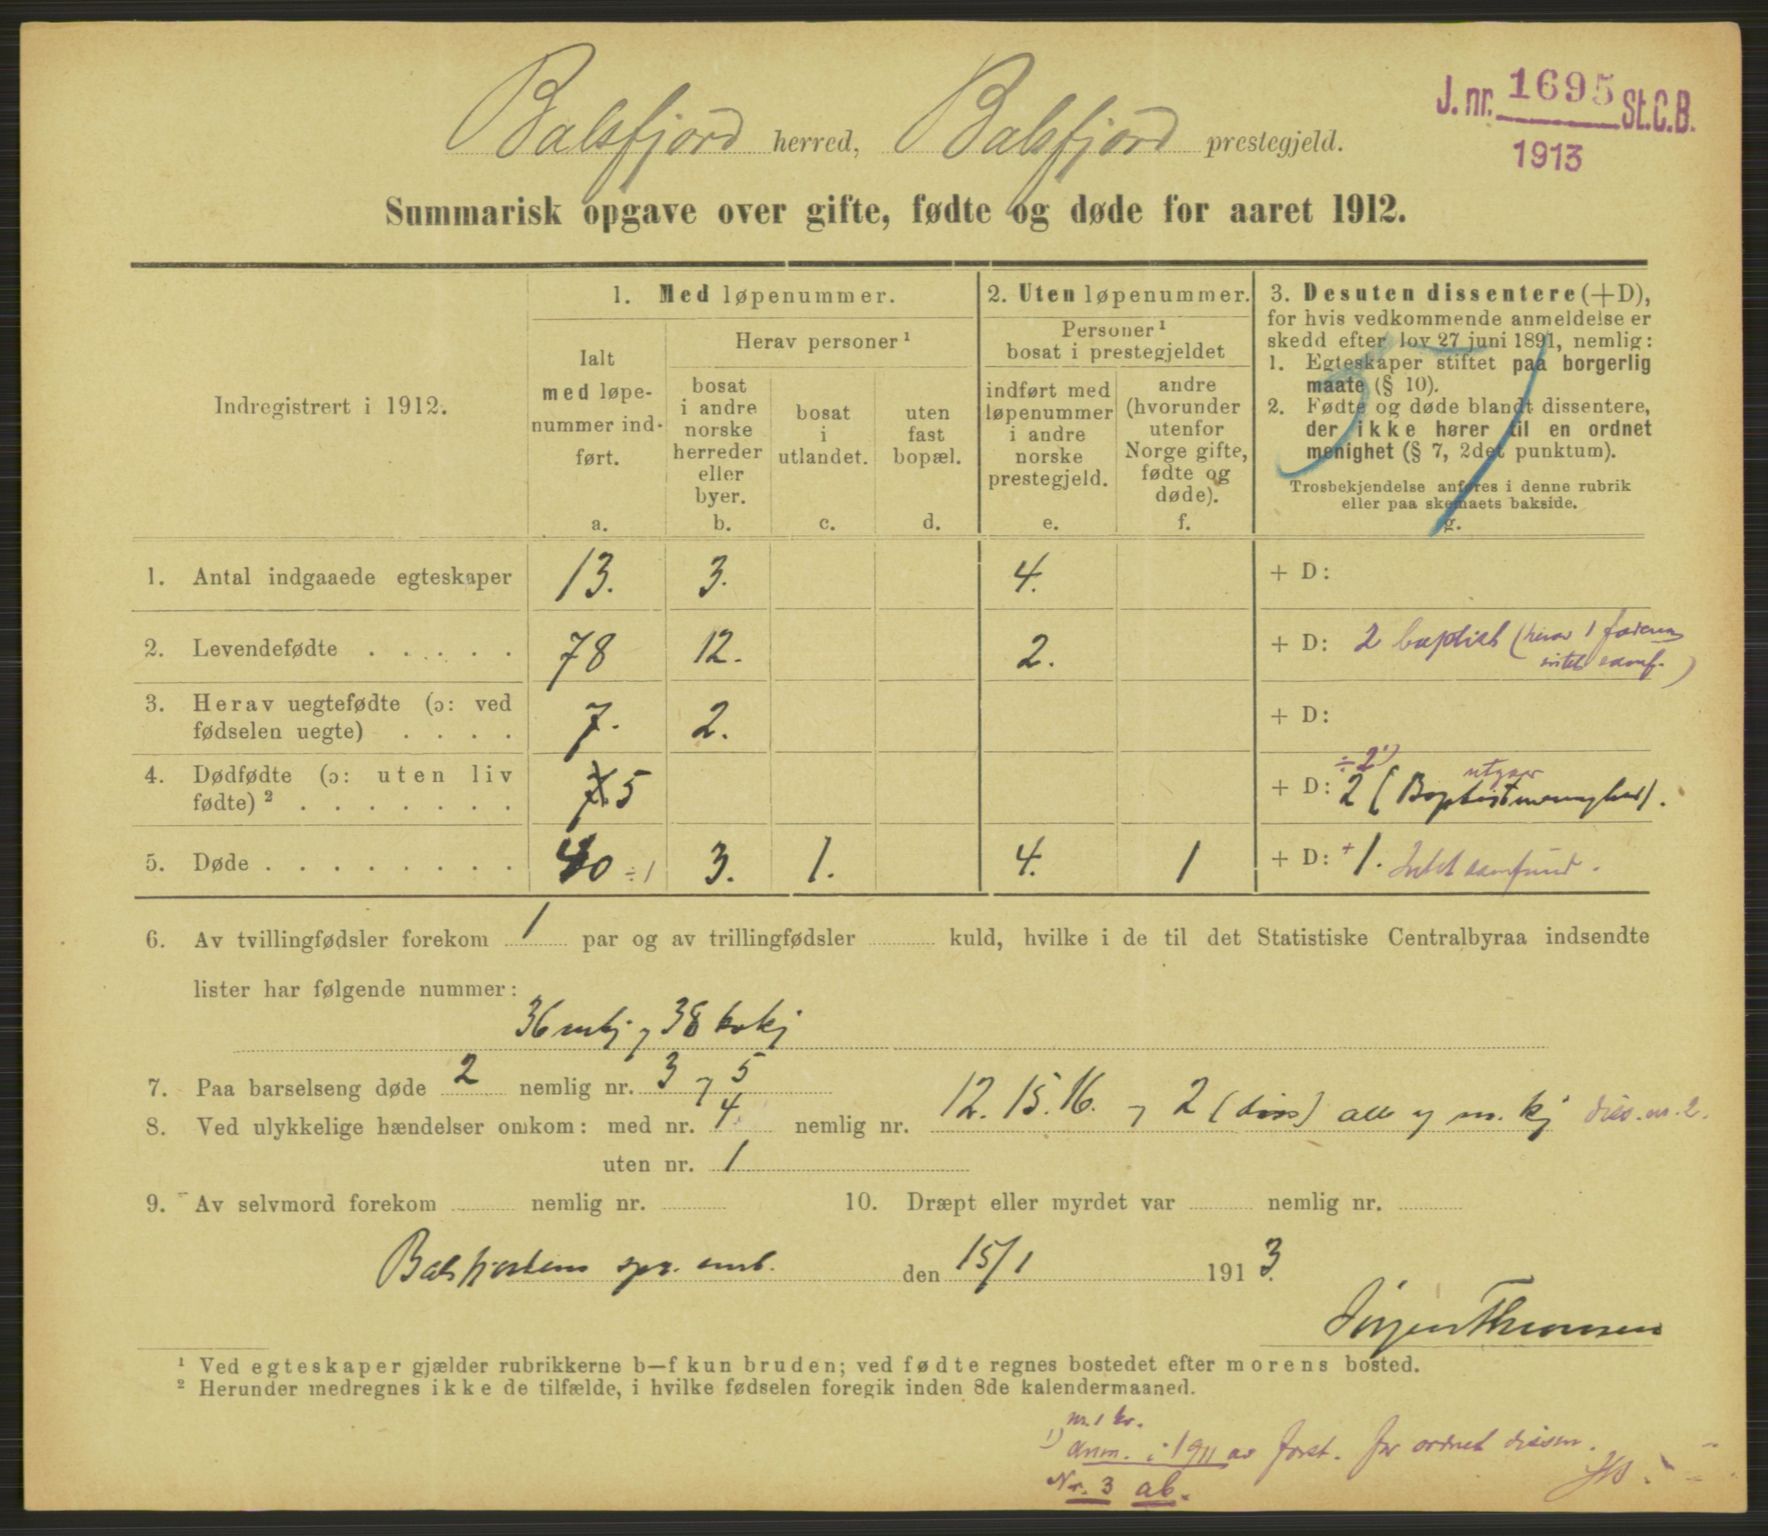 Balsfjord herred, Balsfjord prestegjeld.
J. nr. 1695 St.C.B.
1913
Summarisk opgave over gifte, fødte og døde for aaret 1912.
Indregistrert i 1912.
1. Med løpenummer.
Ialt
med løpe-
nummer ind-
ført.
a.
Herav personer ¹
bosat
i andre
norske
herreder
eller
byer.
b.
bosat
i
utlandet.
c.
uten
fast
bopæl.
d.
2. Uten løpenummer.
Personer ¹
bosat i prestegjeldet
indført med
løpenummer
i andre
norske
prestegjeld.
e.
andre
(hvorunder
utenfor
Norge gifte,
fødte og
døde).
f.
3. Desuten dissentere (+D),
for hvis vedkommende anmeldelse er
skedd efter lov 27 juni 1891, nemlig:
1. Egteskaper stiftet paa borgerlig
maate (§ 10).
2. Fødte og døde blandt dissentere,
der ikke hører til en ordnet
menighet (§ 7, 2det punktum).
Trosbekjendelse anføres i denne rubrik
eller paa skemaets bakside.
g.
1. Antal indgaaede egteskaper 13. 3. 4. + D:
2. Levendefødte . . . . . 78 12. 2. + D: 2 baptist (herav 1 faderen
intet samf.)
3. Herav uegtefødte (ɔ: ved
fødselen uegte) . . . . 7. 2. + D:
÷2¹)
utgaar
4. Dødfødte (ɔ: uten liv
fødte) ² . . . . . . . 7. 5 + D: 2 (Baptistmenighed).
5. Døde . . . . . . . . 40 ÷1 3. 1. 4. 1 + D: + 1. Intet samfund.
6. Av tvillingfødsler forekom 1 par og av trillingfødsler kuld, hvilke i de til det Statistiske Centralbyraa indsendte
lister har følgende nummer:
36 mkj og 38 kvkj
7. Paa barselseng døde 2 nemlig nr. 3 og 5
8. Ved ulykkelige hændelser omkom: med nr. 4 nemlig nr. 12. 15. 16. og 2 (diss) alle af m. kj diss. nr. 2.
uten nr. 1
9. Av selvmord forekom nemlig nr. 10. Dræpt eller myrdet var nemlig nr.
Balsfjordens spr. emb. den 15/1 1913.
Jørgen Thomsen
¹ Ved egteskaper gjælder rubrikkerne b—f kun bruden; ved fødte regnes bostedet efter morens bosted.
² Herunder medregnes ikke de tilfælde, i hvilke fødselen foregik inden 8de kalendermaaned.
nr. 1 kv.
¹) anm. i 1911 av forst. for ordnet dissm.
Nr. 3 ab.